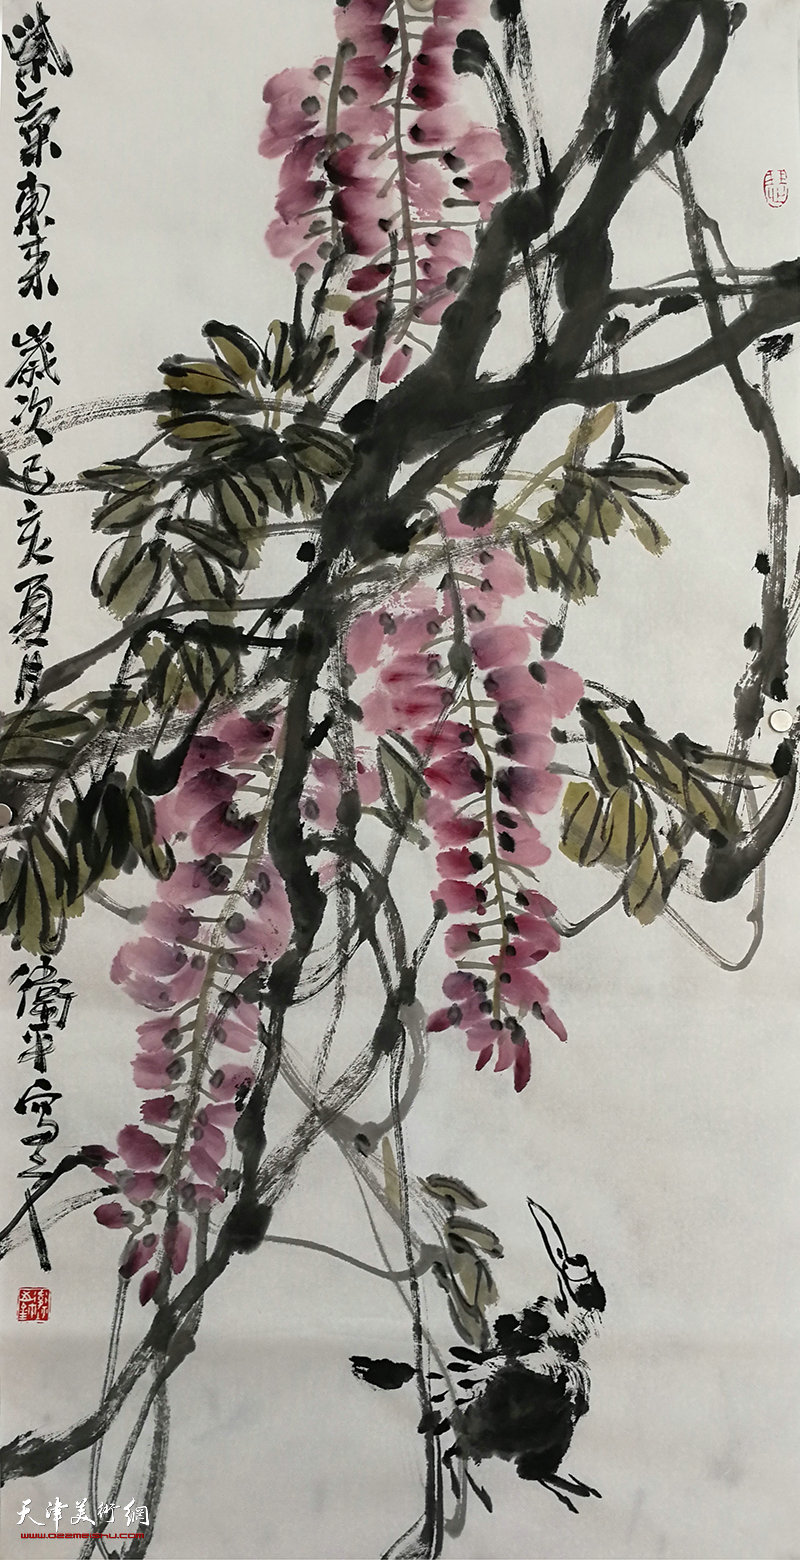 紫氣東来 歲次己亥夏月 衛平寫之
天津美術網
www.022meishu.com